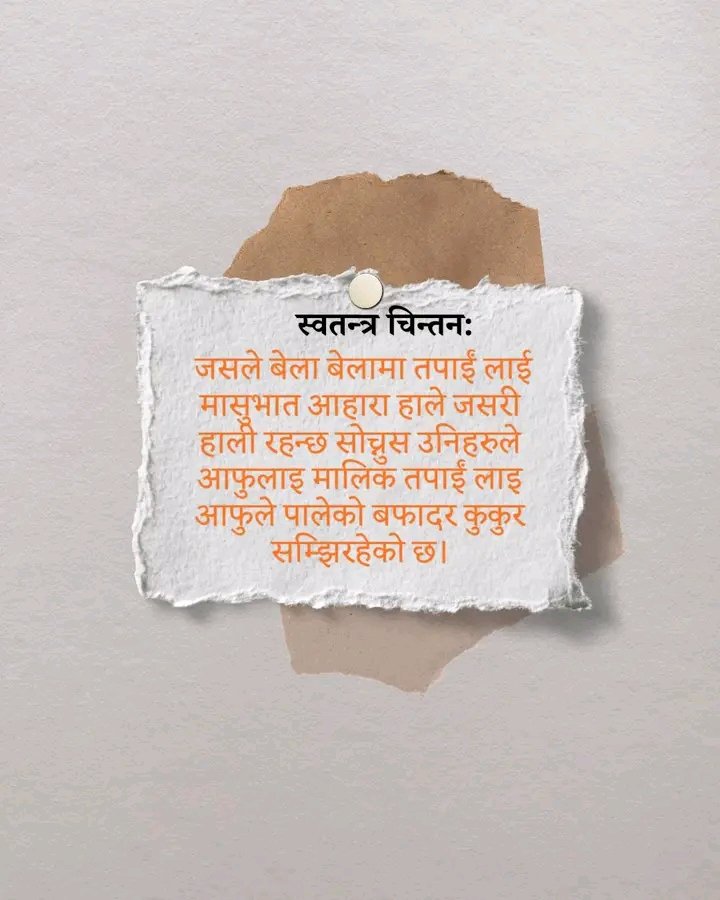 स्वतन्त्र चिन्तन:
जसले बेला बेलामा तपाईं लाई
मासुभात आहारा हाले जसरी
हाली रहन्छ सोच्नुस उनिहरुले
आफुलाइ मालिक तपाईं लाइ
आफुले पालेको बफादर कुकुर
सम्झिरहेको छ।